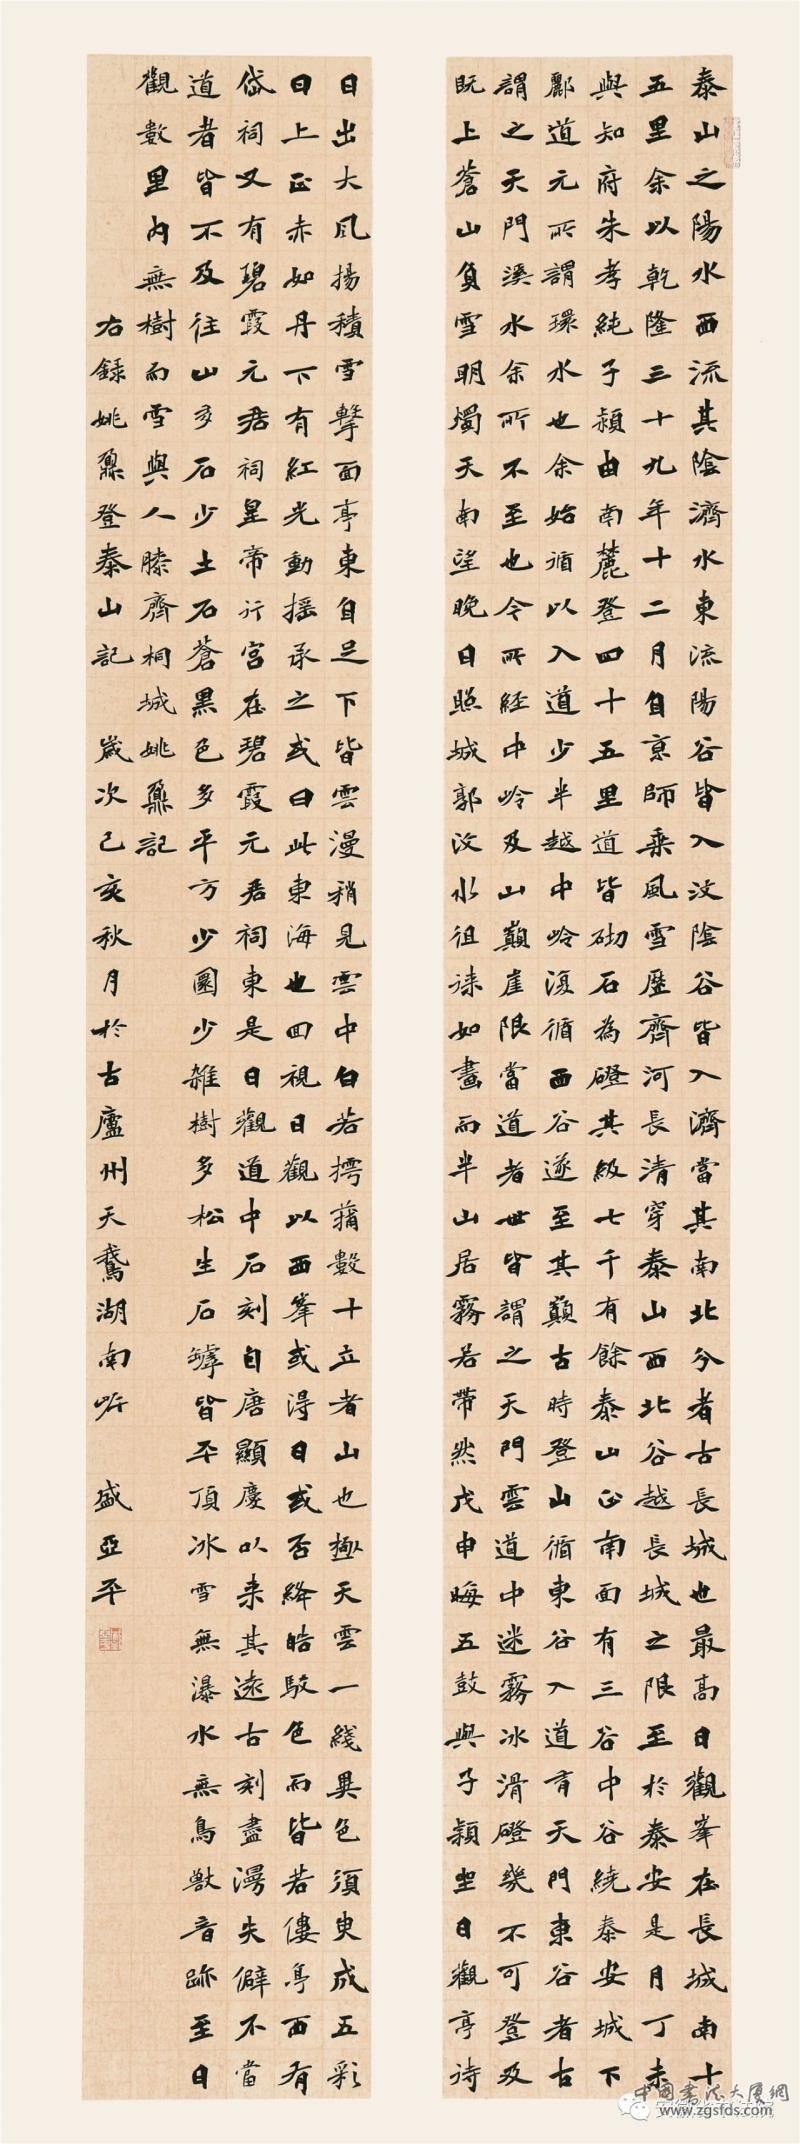 泰山之陽水西流其陰濟水東流陽谷皆入汶陰谷皆入濟當其南北分者古長城也最高日觀峯在長城南十
五里余以乾隆三十九年十二月自京師乘風雪歷齊河長清穿泰山西北谷越長城之限至於泰安是月丁未
與知府朱孝純子穎由南麓登四十五里道皆砌石為磴其級七千有餘泰山正南面有三谷中谷繞泰安城下
酈道元所謂環水也余始循以入道少半越中岭復循西谷遂至其巔古時登山循東谷入道有天門東谷者古
謂之天門溪水余所不至也今所經中岭及山巔崖限當道者世皆謂之天門雲道中迷霧冰滑磴幾不可登及
既上蒼山負雪明燭天南望晚日照城郭汶水徂徠如畫而半山居霧若帶然戊申晦五鼓與子穎坐日觀亭待
日出大風揚積雪擊面亭東自足下皆雲漫稍見雲中白若摴蒱數十立者山也極天雲一綫異色須臾成五彩
日上正赤如丹下有紅光動搖承之或曰此東海也回視日觀以西峯或得日或否絳皓駮色而皆若僂亭西有
岱祠又有碧霞元君祠皇帝行宮在碧霞元君祠東是日觀道中石刻自唐顯慶以来其遠古刻盡漫失僻不當
道者皆不及往山多石少土石蒼黑色多平方少圜少雜樹多松生石罅皆平頂冰雪無瀑水無鳥獸音跡至日
觀數里內無樹而雪與人膝齊桐城姚鼐記
右録姚鼐登泰山記 歲次己亥秋月於古廬州天鵝湖南畔 盛亞平
中國書法大厦網
www.zgsfds.com